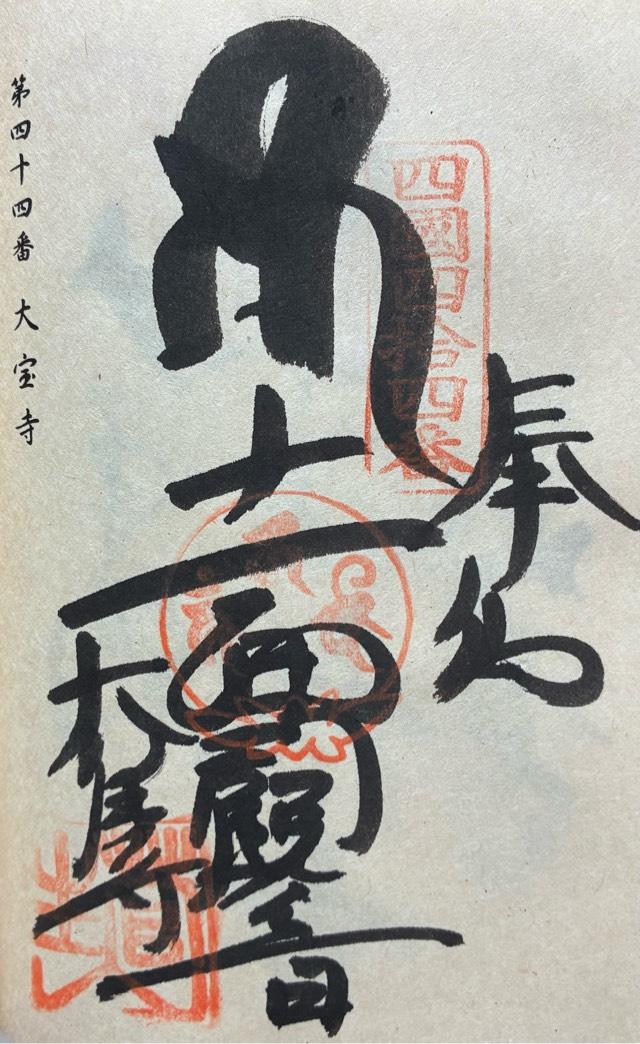 奉納
四國四拾四番
十一面観音
大寳寺
第四十四番 大宝寺